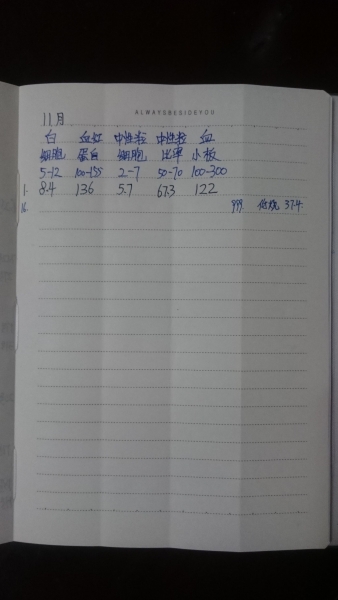 ALWAYSBESIDEYOU
11月
白 血红 中性粒 中性粒 血
细胞 蛋白 细胞 比率 小板
5-12 100-155 2-7 50-70 100-300
1. 8.4 136 5.7 67.3 122
16. 999. 低烧 37.4